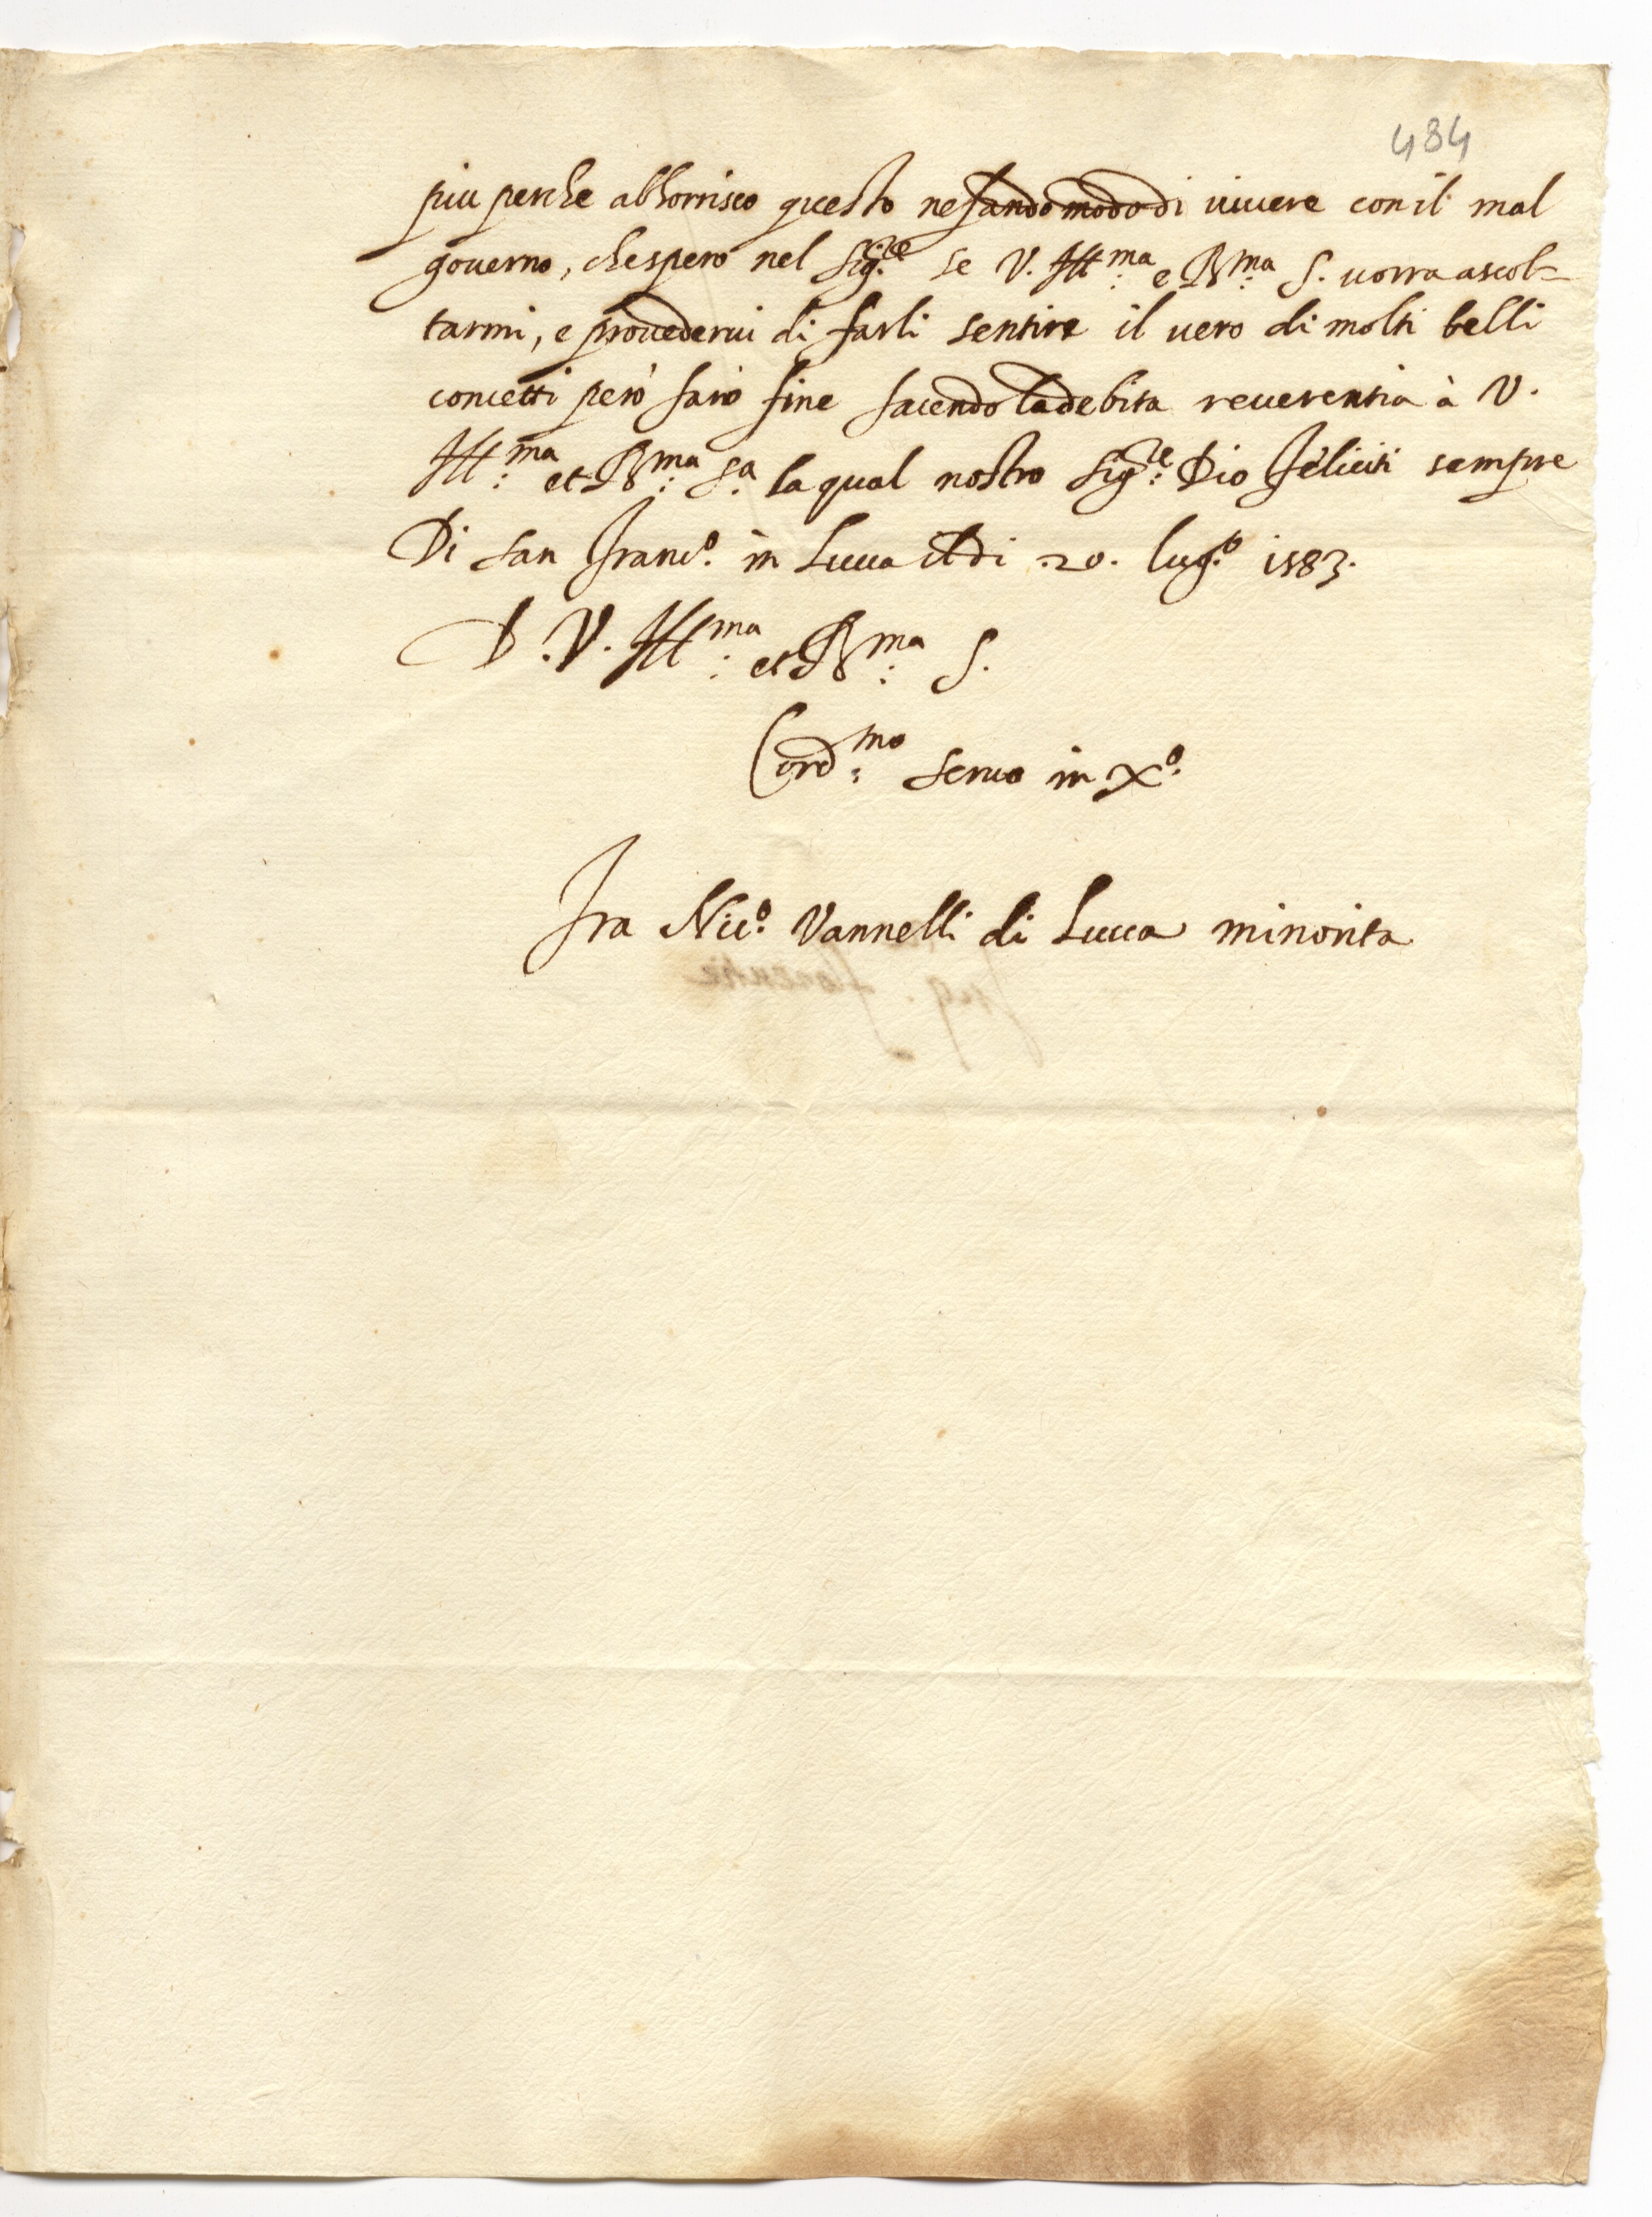 484
piu perche abhorrisco questo nefando modo di uiuere con il mal
gouerno, che spero nel Sig.re se V. Ill.ma e R.ma S. uorra ascol-
tarmi, e prouederui di farli sentire il uero di molti belli
concetti però farò fine facendo la debita reuerentia à V.
Ill.ma et R.ma S.a la qual nostro Sig.re Dio feliciti sempre
Di san Franc.o in Lucca il di .20. lug.o 1583.
D. V. Ill.ma et R.ma S.
Cord.mo seruo in X.o
Fra Nic.o Vannelli di Lucca minorita